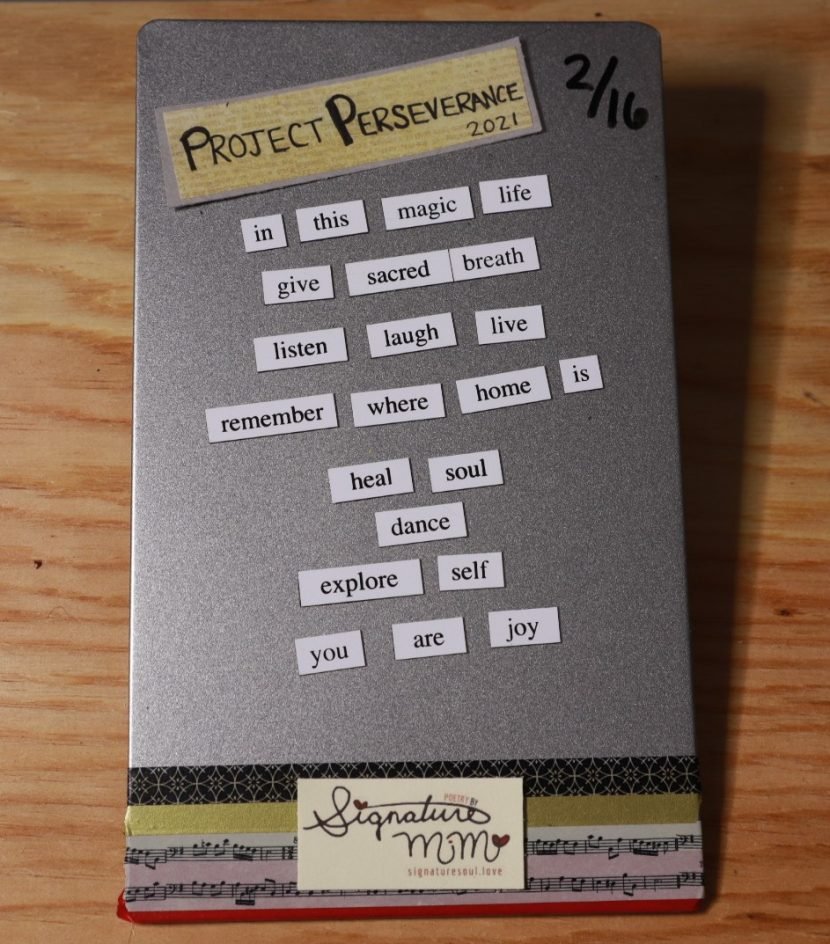 PROJECT PERSEVERANCE
2021
2/16
in this magic life
give sacred breath
listen laugh live
remember where home is
heal soul
dance
explore self
you are joy
POETRY BY
Signature
MiMi
signaturesoul.love